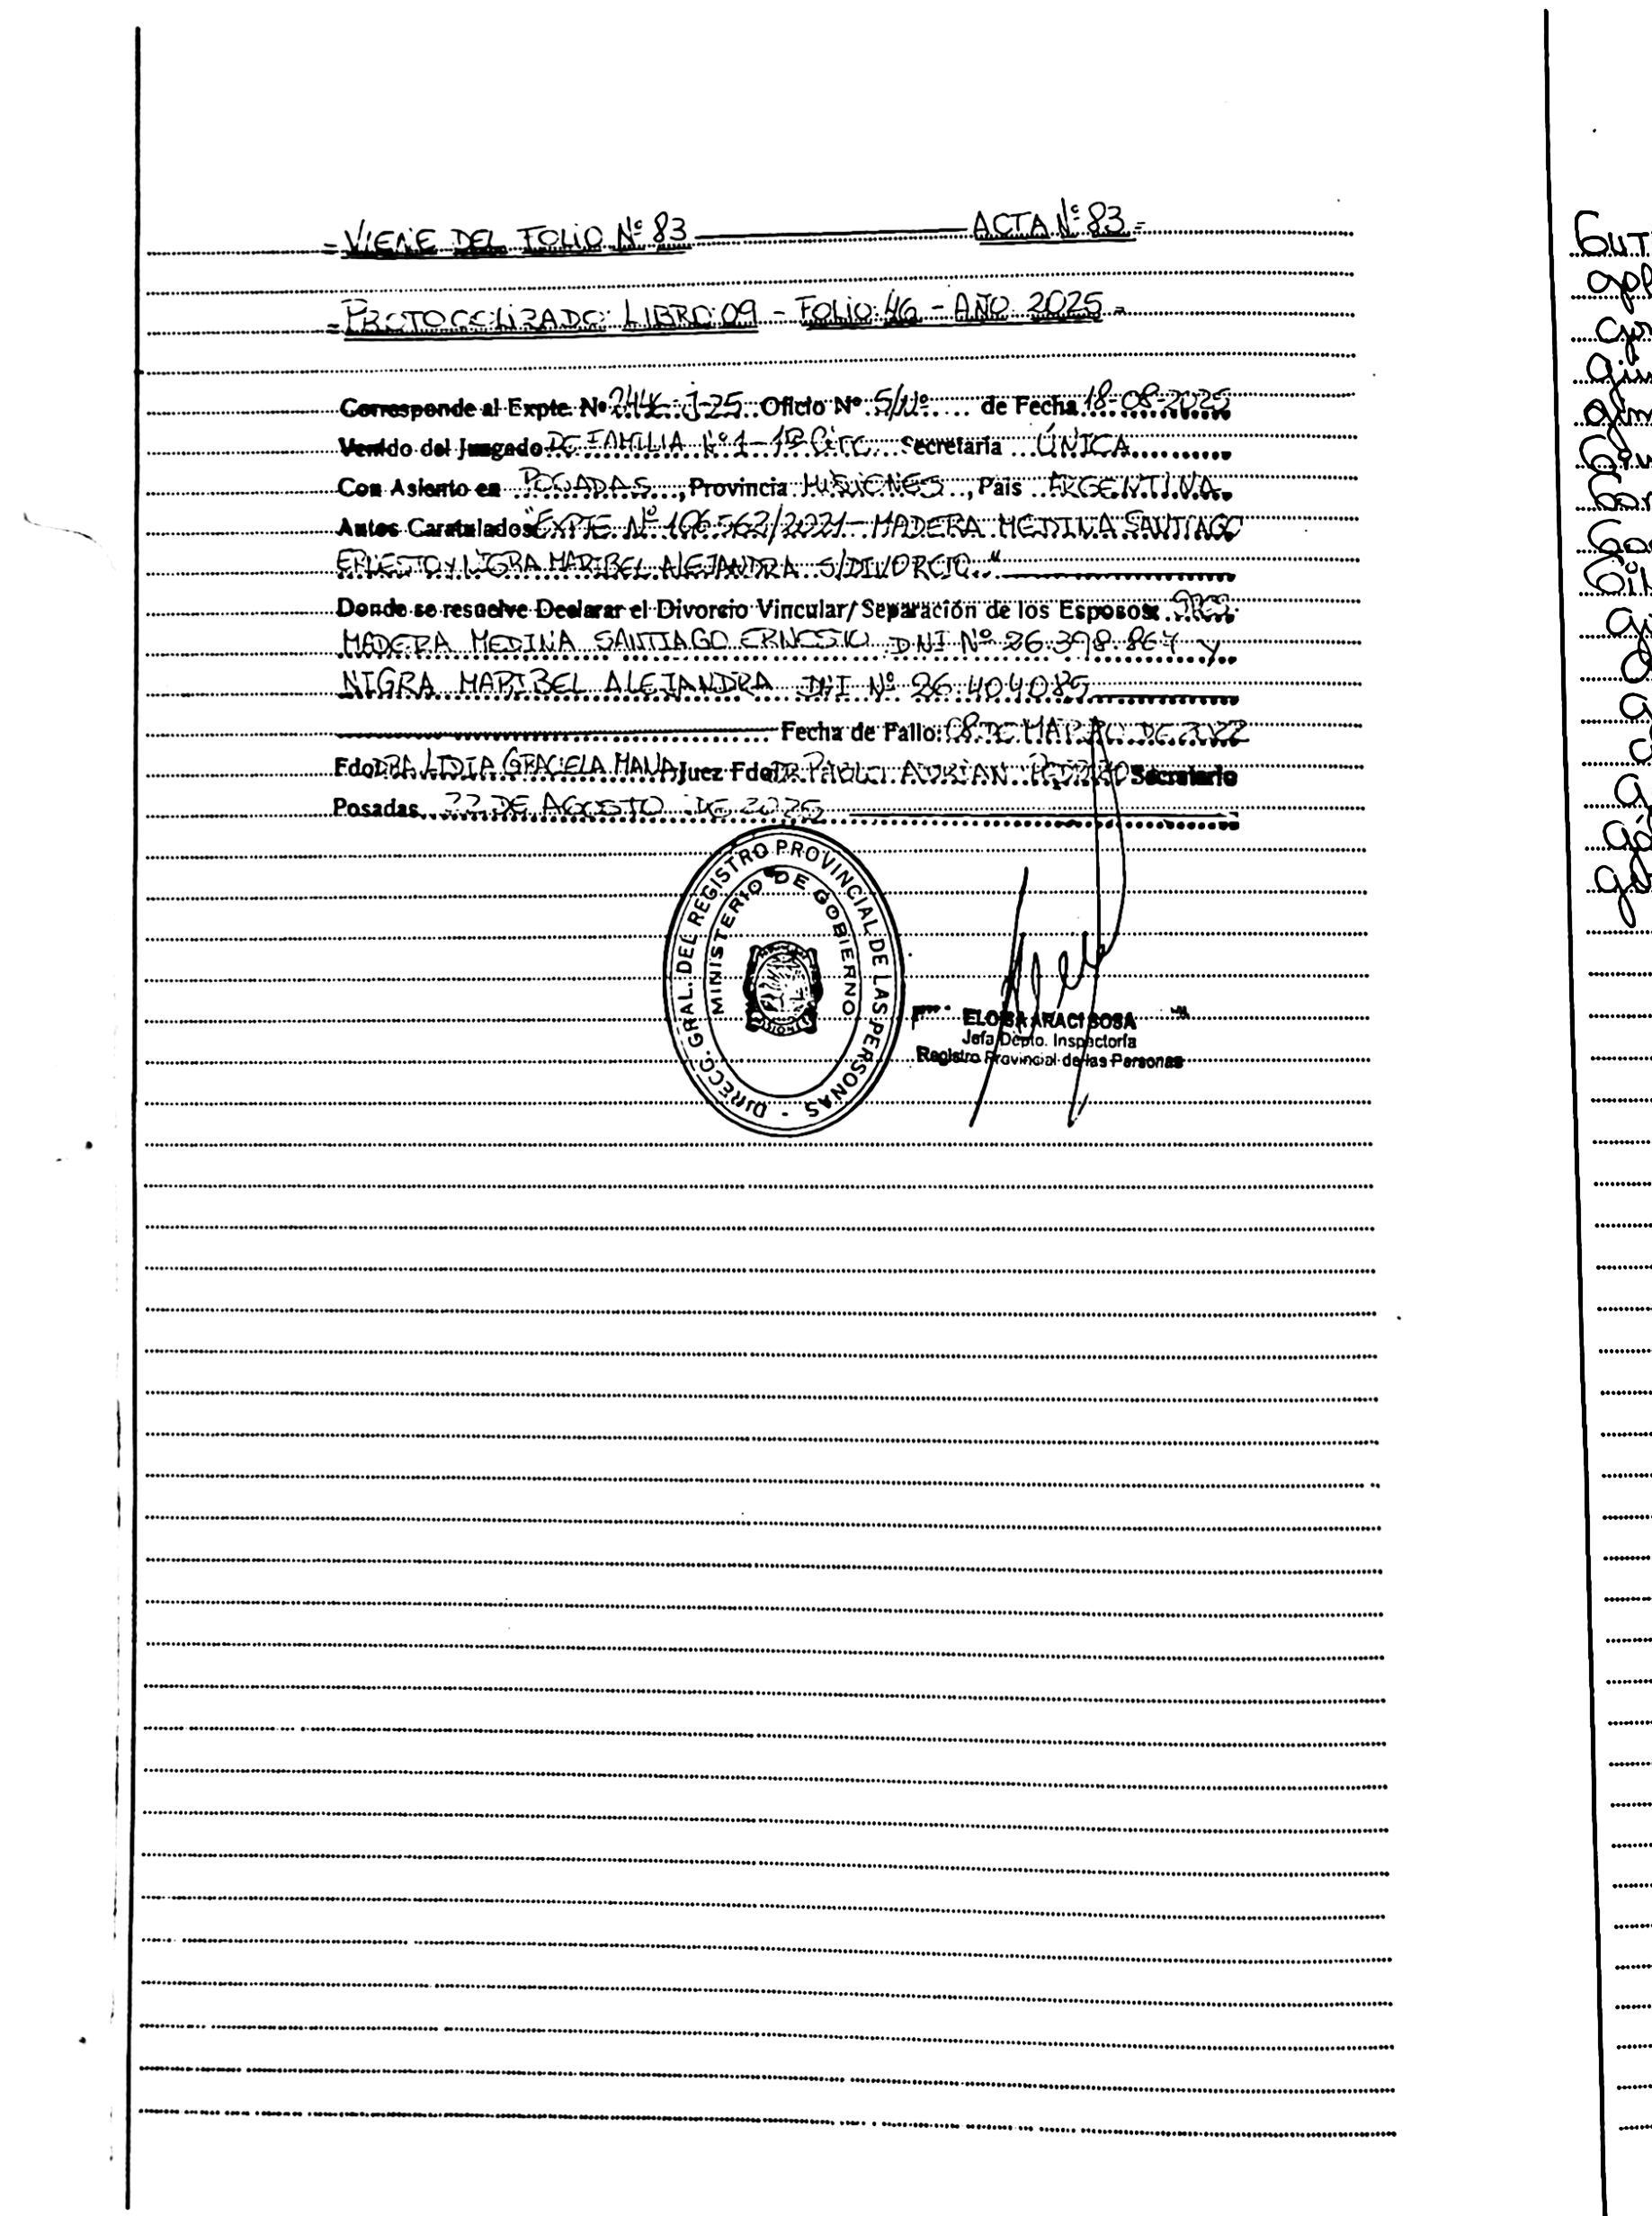 = VIENE DEL FOLIO Nº 83 ACTA Nº 83 =
= PROTOCOLIZADO: LIBRO: 09 - FOLIO: 46 - AÑO 2025 =
Corresponde al Expte. Nº 2446-J-25 Oficio Nº S/Nº de Fecha 18-08-2025
Venido del Juzgado DE FAMILIA Nº 1 - 1ª Circ Secretaria ÚNICA
Con Asiento en POSADAS, Provincia MISIONES, Pais ARGENTINA
Autos Caratulados "EXPTE Nº 106562/2021 - MADERA MEDINA SANTIAGO
ERNESTO Y NIGRA MARIBEL ALEJANDRA S/DIVORCIO"
Donde se resuelve Declarar el Divorcio Vincular/ Separación de los Esposos: SRES.
MADERA MEDINA SANTIAGO ERNESTO DNI Nº 26.398.867 y
NIGRA MARIBEL ALEJANDRA DNI Nº 26.404.085
Fecha de Fallo: 08 DE MARZO DE 2022
Fdo: DRA LIDIA GRACIELA Juez Fdo: DR PABLO ADRIAN Secretario
Posadas, 22 DE AGOSTO DE 2025
DIRECC. GRAL. DEL REGISTRO PROVINCIAL DE LAS PERSONAS -
MINISTERIO DE GOBIERNO
ELOISA ARACI SOSA
Jefa Depto. Inspectoría
Registro Provincial de las Personas